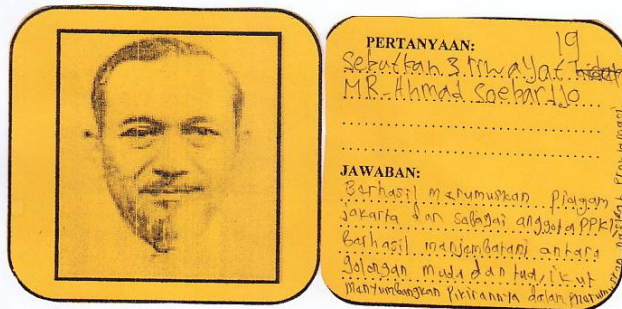 PERTANYAAN: 19
Sebutkan 3 riwayat
MR. Ahmad Soebardjo
JAWABAN:
Berhasil merumuskan piagam
jakarta dan sebagai anggota PPKI
Berhasil menjembatani antara
golongan muda dan tua, ikut
menyumbangkan pikirannya dalam perumuskan naskah proklamasi